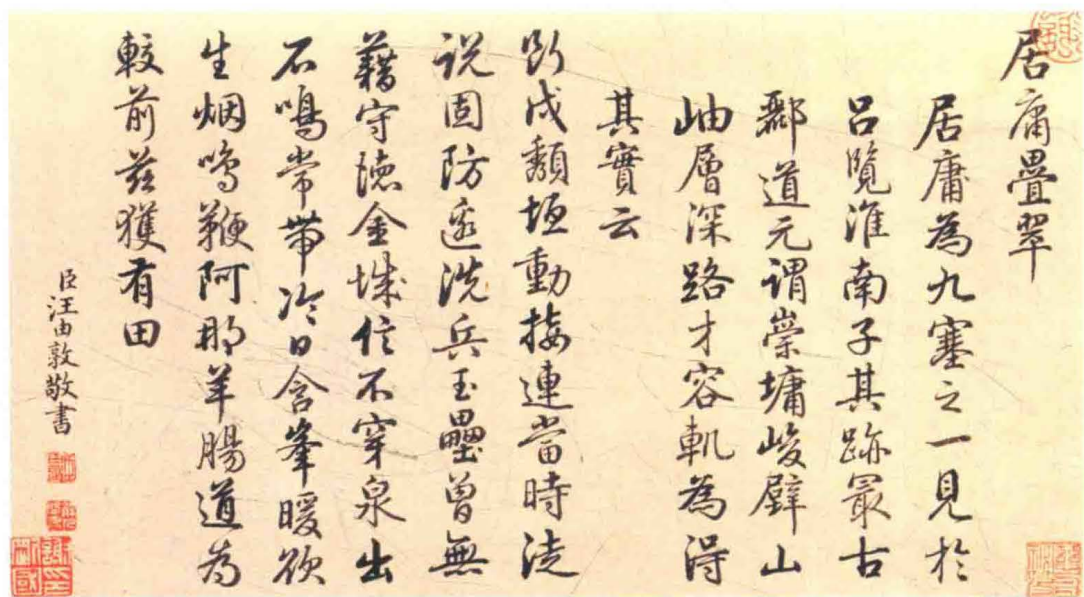 居庸疊翠
居庸為九塞之一見於
呂覽淮南子其跡最古
酈道元謂崇墉峻壁山
岫層深路才容軌為得
其實云
斷戍頹垣動接連當時徒
説固防邊洗兵玉壘曾無
藉守德金城信不穿泉出
石鳴常帶冷日含峯暖欲
生烟鳴鞭阿那羊腸道為
較前茲獲有田
臣汪由敦敬書